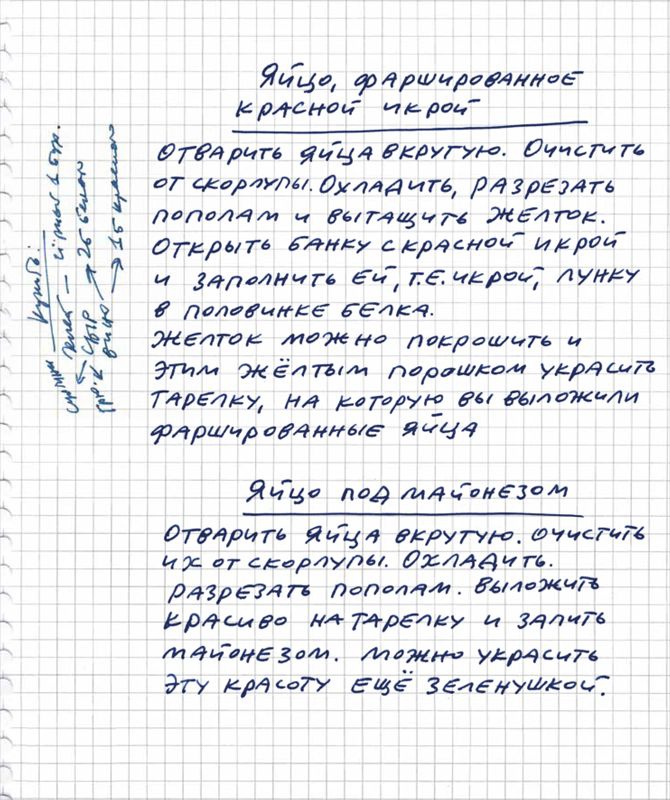 Яйцо, фаршированное
красной икрой
Отварить яйца вкрутую. Очистить
от скорлупы. Охладить, разрезать
пополам и вытащить желток.
Открыть банку с красной икрой
и заполнить ей, т.е. икрой, лунку
в половинке белка.
Желток можно покрошить и
этим жёлтым порошком украсить
тарелку, на которую вы выложили
фаршированные яйца
Яйцо под майонезом
Отварить яйца вкрутую. Очистить
их от скорлупы. Охладить.
Разрезать пополам. Выложить
красиво на тарелку и залить
майонезом. Можно украсить
эту красоту ещё зеленушкой.
Купить:
хлеб —
сыр
вино → 2б белого
→ 1б красного